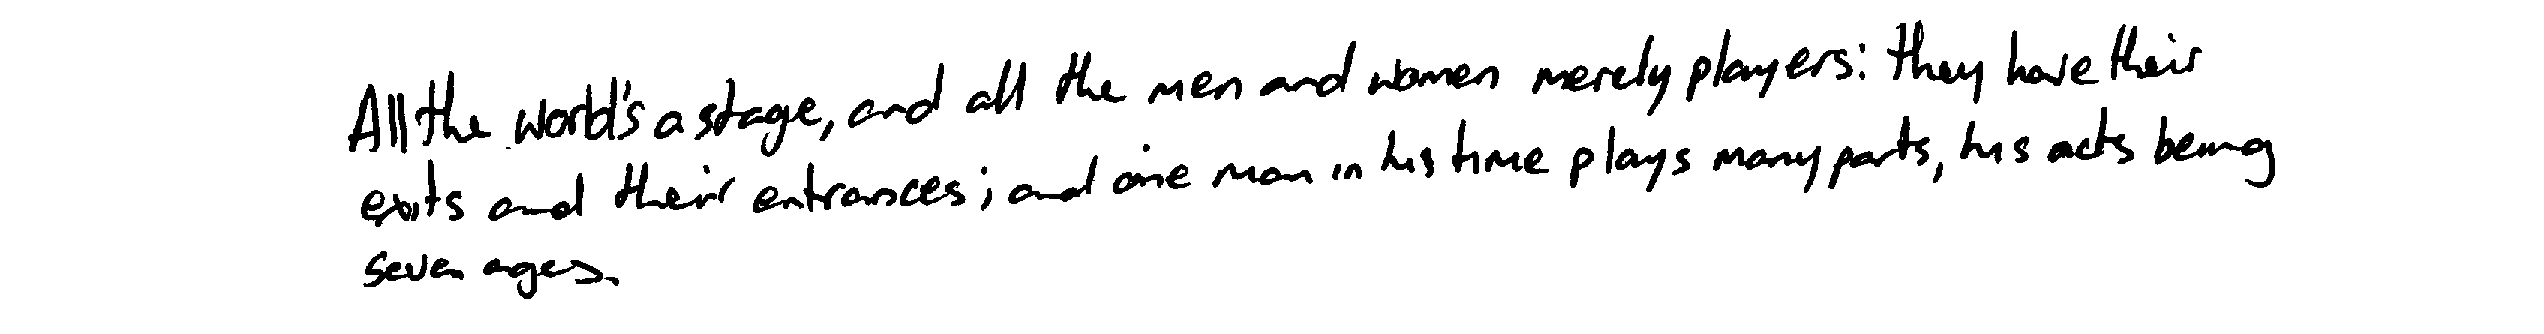 All the world's a stage, and all the men and women merely players: they have their
exits and their entrances; and one man in his time plays many parts, his acts being
seven ages.